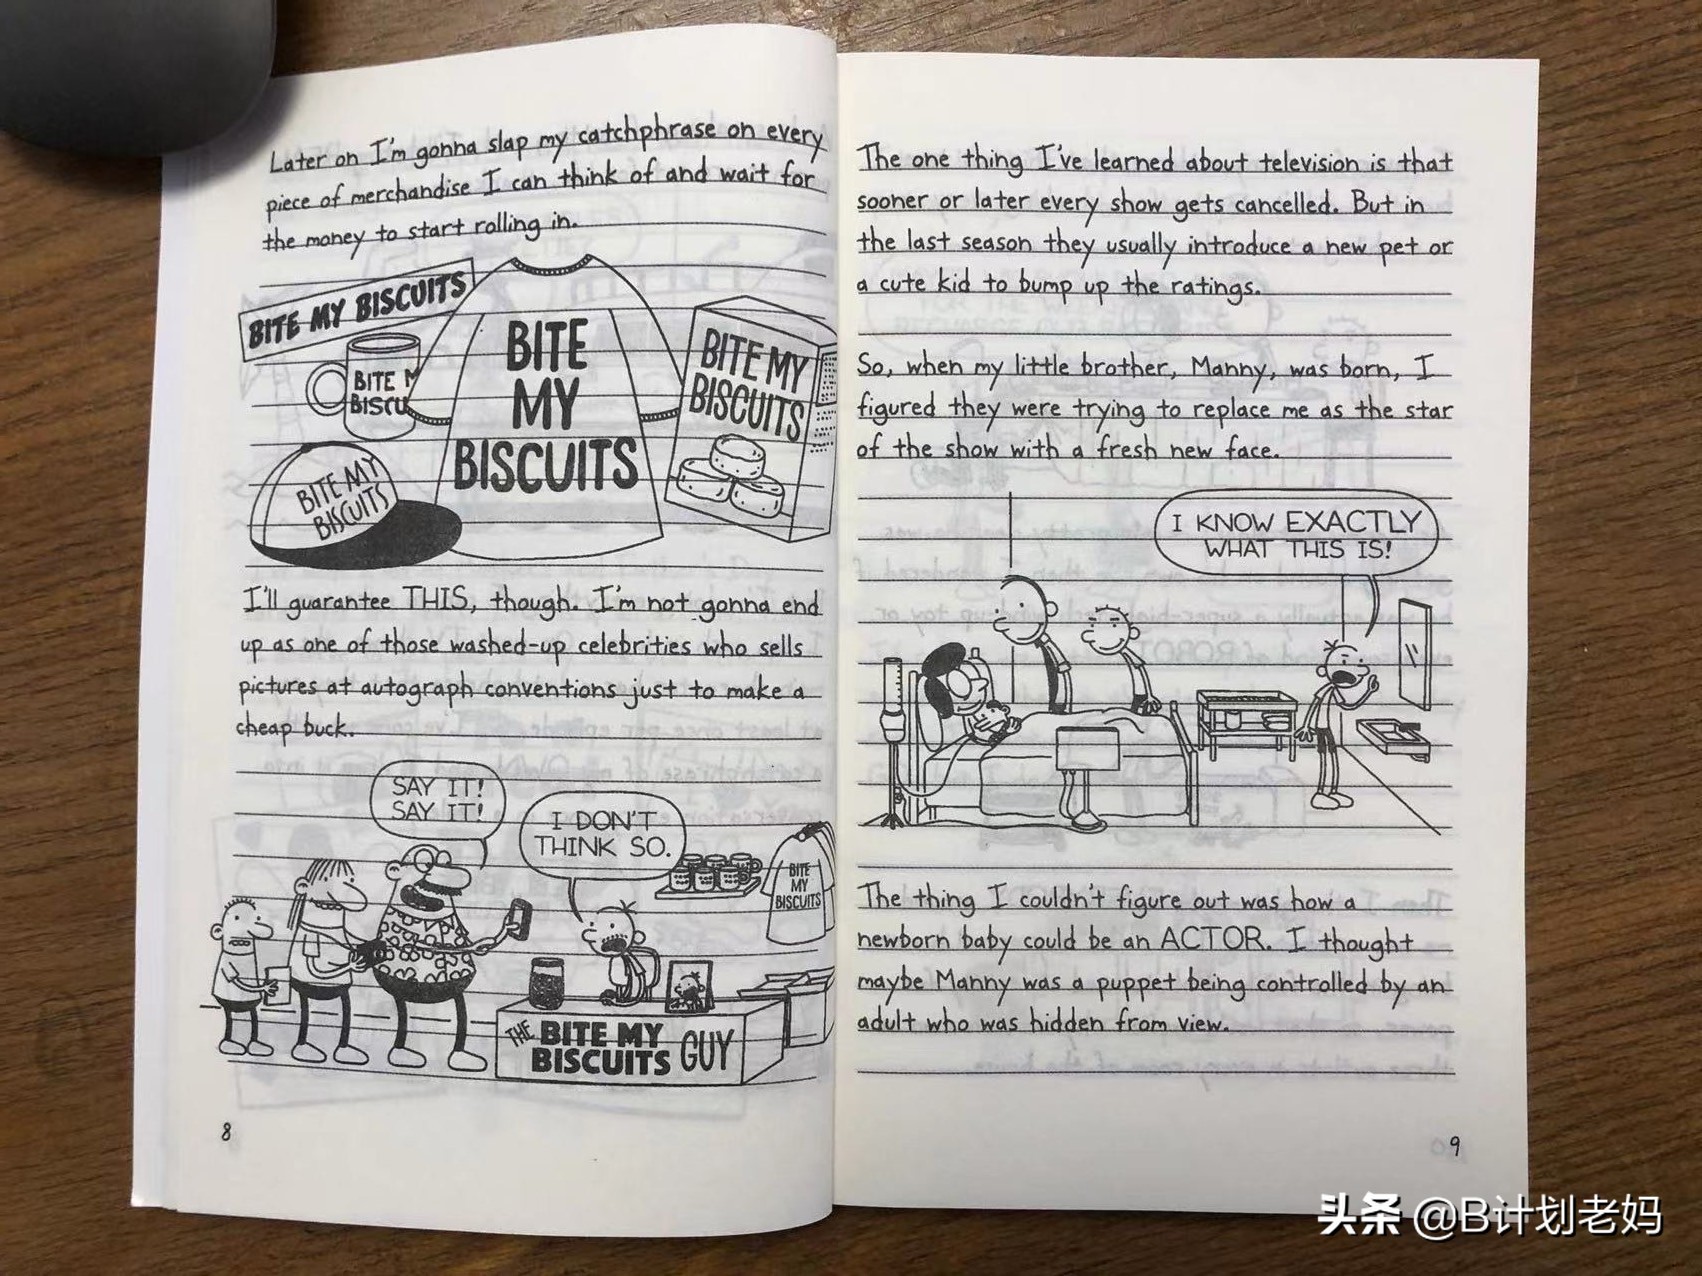 Later on I'm gonna slap my catchphrase on every
piece of merchandise I can think of and wait for
the money to start rolling in.
BITE MY BISCUITS
BITE M
BISCU
BITE
MY
BISCUITS
BITE MY
BISCUITS
BITE MY
BISCUITS
I'll guarantee THIS, though. I'm not gonna end
up as one of those washed-up celebrities who sells
pictures at autograph conventions just to make a
cheap buck.
SAY IT!
SAY IT!
I DON'T
THINK SO.
BITE
MY
BISCUITS
THE BITE MY BISCUITS GUY
8
The one thing I've learned about television is that
sooner or later every show gets cancelled. But in
the last season they usually introduce a new pet or
a cute kid to bump up the ratings.
So, when my little brother, Manny, was born, I
figured they were trying to replace me as the star
of the show with a fresh new face.
I KNOW EXACTLY
WHAT THIS IS!
The thing I couldn't figure out was how a
newborn baby could be an ACTOR. I thought
maybe Manny was a puppet being controlled by an
adult who was hidden from view.
9
头条 @B计划老妈